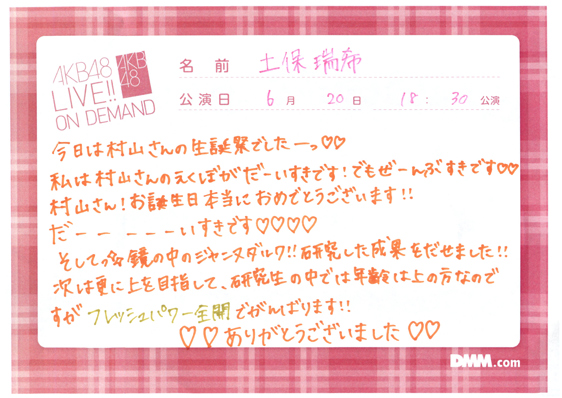 AKB48
LIVE!!
ON DEMAND
AKB
48
名前 土保瑞希
公演日 6月 20日 18:30公演
今日は村山さんの生誕祭でしたーっ♡♡
私は村山さんのえくぼがだーいすきです!でもぜーんぶすきです♡♡
村山さん!お誕生日本当におめでとうございます!!
だー ー ーーーいすきです♡♡♡♡
そしてっ☆鏡の中のジャンヌダルク!!研究した成果をだせました!!
次は更に上を目指して、研究生の中では年齢は上の方なので
すが フレッシュパワー全開でがんばります!!
♡♡ありがとうございました♡♡
DMM.com